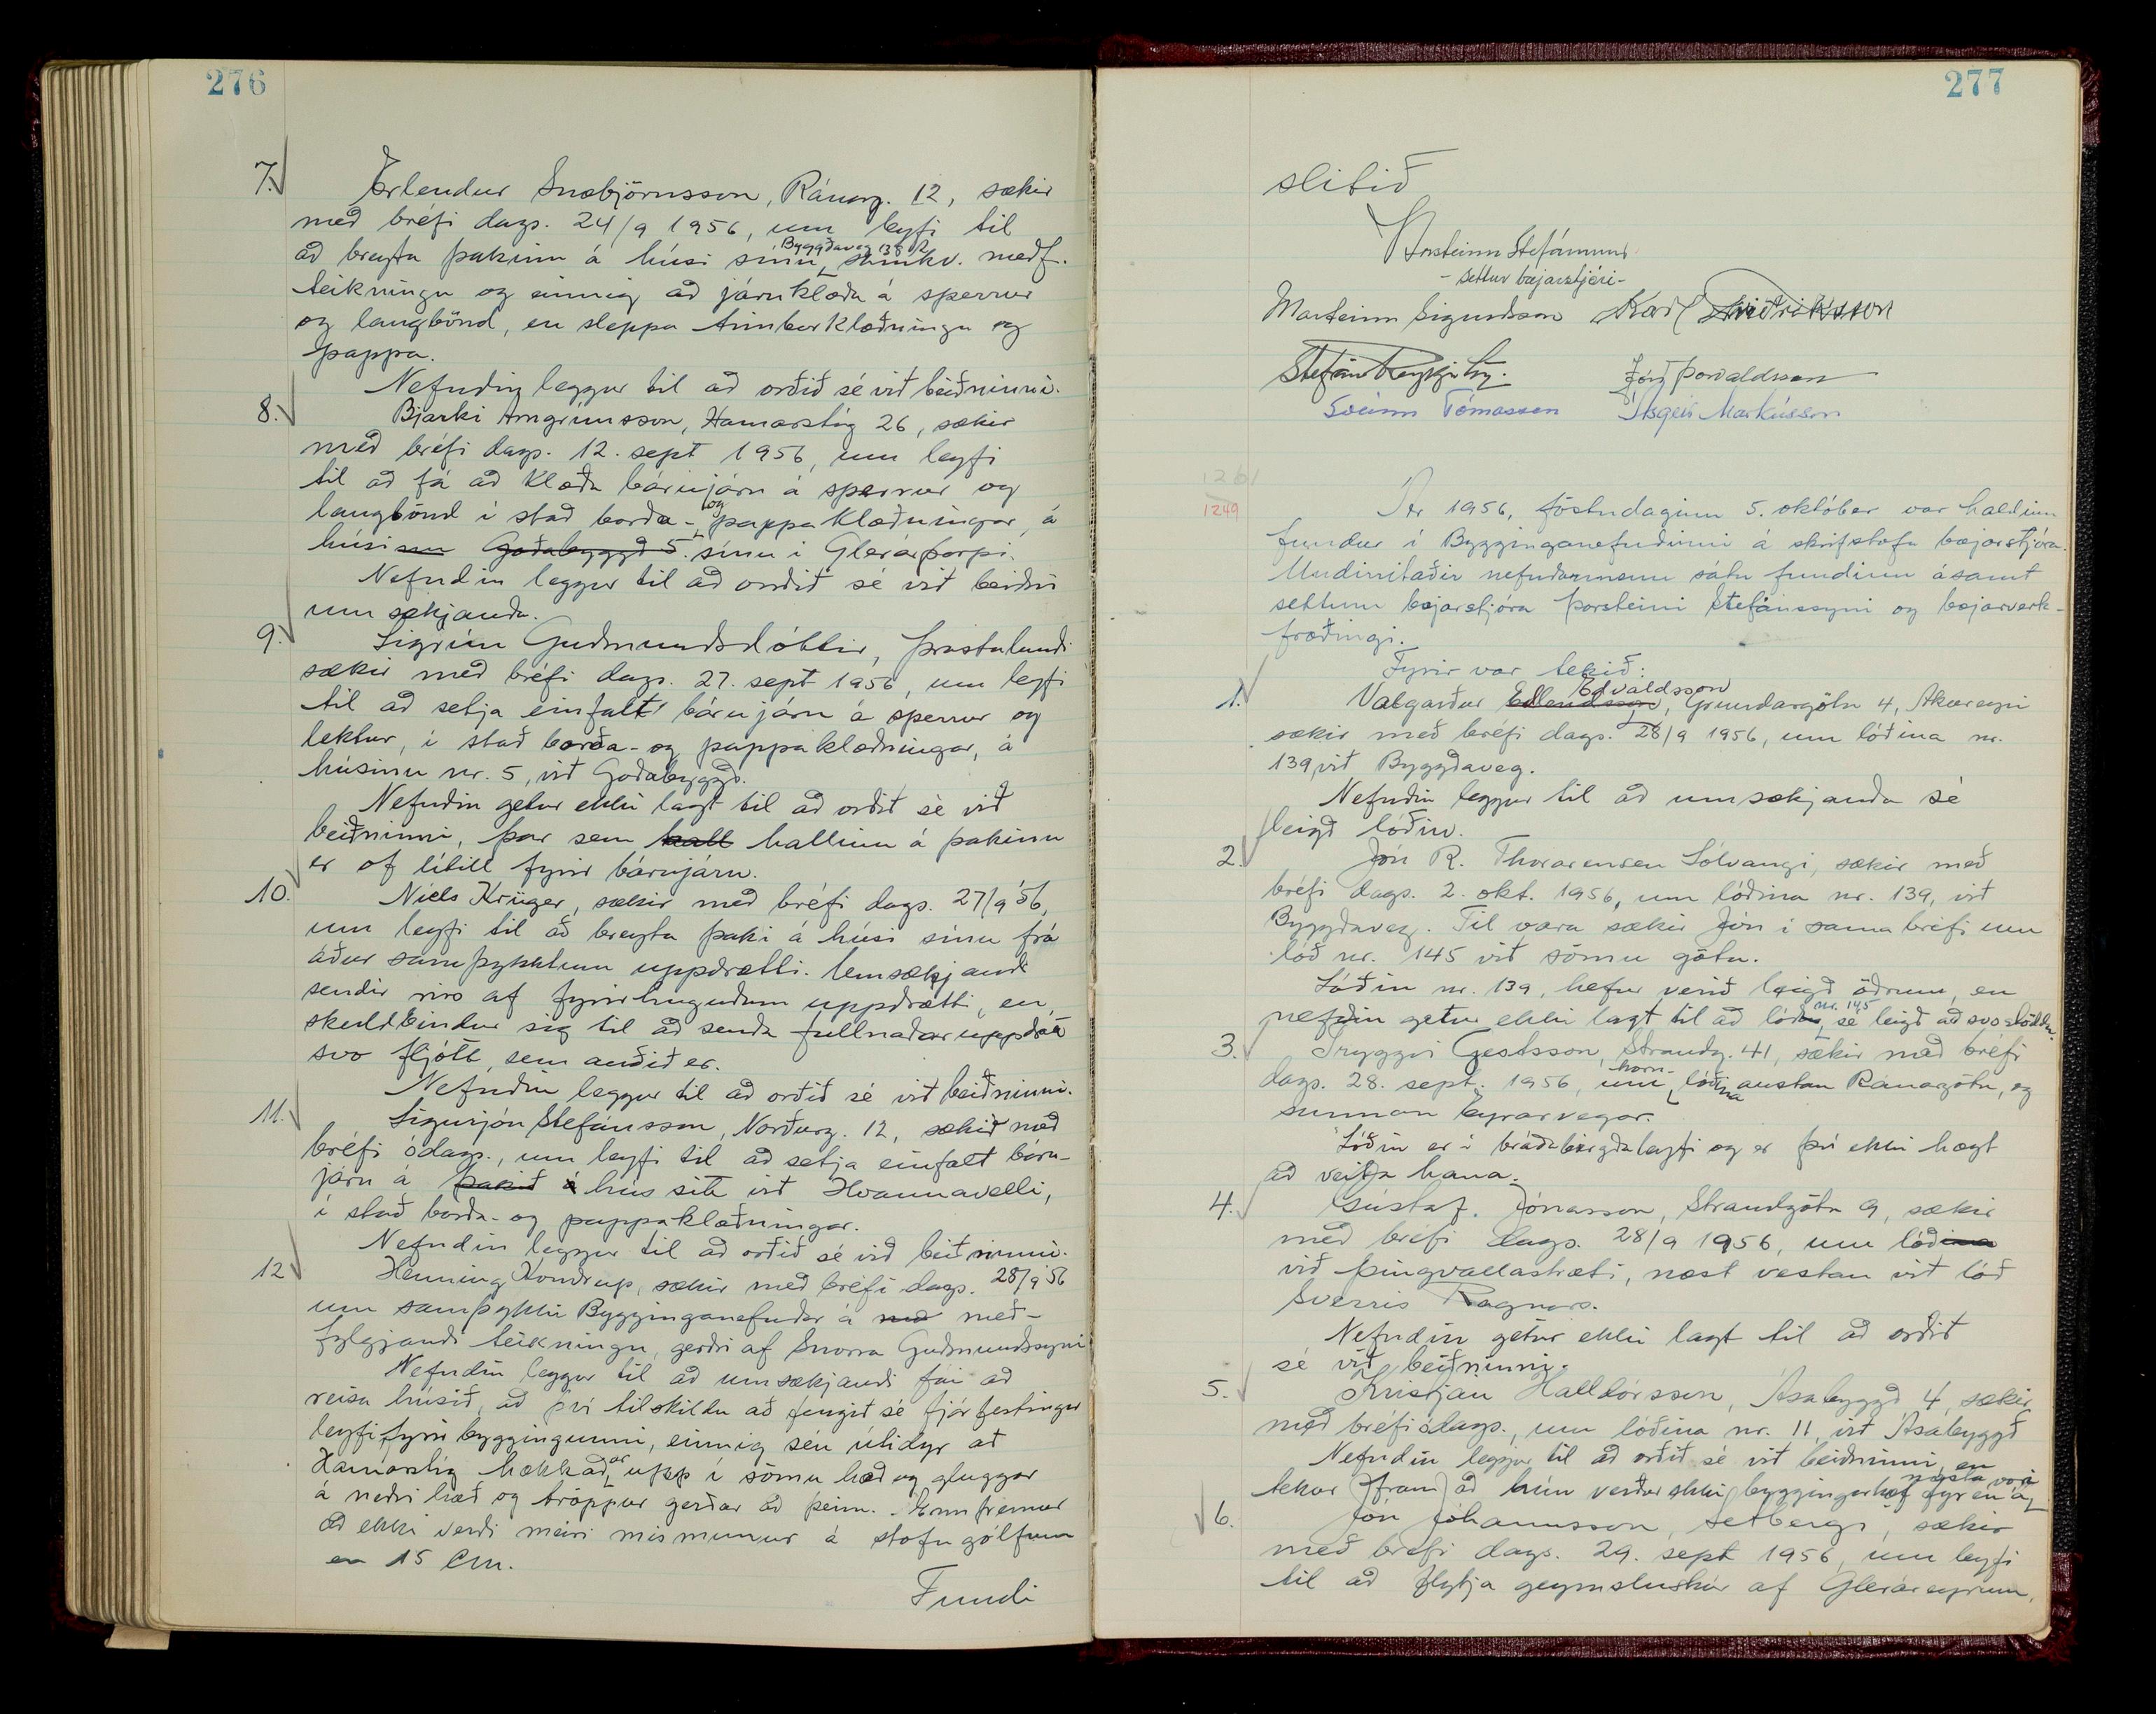 276
7. Erlendur Snæbjörnsson, Ránarg. 12, sækir
með bréfi dags. 24/9 1956, um leyfi til
að breyta þakinu á húsi sínu Byggðaveg 138 samkv. meðf.
teikningu og einnig að járnklæða á sperrur
og langbönd, en sleppa timburklæðningu og
pappa.
Nefndin leggur til að orðið sé við beiðninni.
8. Bjarki Arngrímsson, Hamarstíg 26, sækir
með bréfi dags. 12. sept 1956, um leyfi
til að fá að klæða bárujárn á sperrur og
langbönd í stað borða- og pappaklæðningar, á
húsi sem Goðabyggð 5. sínu í Glerárþorpi.
Nefndin leggur til að orðið sé við beiðni
umsækjanda.
9. Sigrún Guðmundsdóttir, Þrastalundi
sækir með bréfi dags. 27. sept 1956, um leyfi
til að setja einfalt bárujárn á sperrur og
lektur, í stað borða- og pappaklæðningar, á
húsinu nr. 5, við Goðabyggð.
Nefndin getur ekki lagt til að orðið sé við
beiðninni, þar sem hall hallinn á þakinu
er of lítill fyrir bárujárn.
10. Niels Krüger, sækir með bréfi dags. 27/9 '56,
um leyfi til að breyta þaki á húsi sínu frá
áður samþykktum uppdrætti. Umsækjandi
sendir riss af fyrirhuguðum uppdrætti, en
skuldbindur sig til að senda fullnaðaruppdrátt
svo fljótt, sem auðið er.
Nefndin leggur til að orðið sé við beiðninni.
11. Sigurjón Stefánsson, Norðurg. 12, sækir með
bréfi ódags., um leyfi til að setja einfalt báru-
járn á þakið á hús sitt við Hvannavelli,
í stað borða- og pappaklæðningar.
Nefndin leggur til að orðið sé við beiðninni.
12 Henning Kondrup, sækir með bréfi dags. 28/9 '56
um samþykki Bygginganefndar á með með-
fylgjandi teikningu, gerðri af Snorra Guðmundssyni
Nefndin leggur til að umsækjandi fái að
reisa húsið, að því tilskildu að fengið sé fjárfestingar
leyfi fyrir byggingunni, einnig séu útidyr að
Hamarstíg hækkaðar upp í sömu hæð og gluggar
á neðri hæð og tröppur gerðar að þeim. Ennfremur
að ekki verði meiri mismunur á stofugólfum
en 15 cm.
Fundi
277
slitið
Þorsteinn Stefánsson
- settur bæjarstjóri -
Marteinn Sigurðsson Karl Friðriksson
Stefán Reykjalín. Jón Þorvaldsson
Sveinn Tómasson Ásgeir Markússon
1261
1249
Ár 1956, föstudaginn 5. október var haldinn
fundur í Bygginganefndinni á skrifstofu bæjarstjóra.
Undirritaðir nefndarmenn sátu fundinn ásamt
settum bæjarstjóra Þorsteini Stefánssyni og bæjarverk-
fræðingi.
Fyrir var tekið:
1. Valgarður Erlendsson Edvaldsson, Grundargötu 4, Akureyri
sækir með bréfi dags. 28/9 1956, um lóðina nr.
139, við Byggðaveg.
Nefndin leggur til að umsækjanda sé
leigð lóðin.
2. Jón R. Thorarensen Sólvangi, sækir með
bréfi dags. 2. okt. 1956, um lóðina nr. 139, við
Byggðaveg. Til vara sækir Jón í sama bréfi um
lóð nr. 145 við sömu götu.
Lóðin nr. 139, hefur verið leigð öðrum, en
nefndin getur ekki lagt til að lóðin nr. 145 sé leigð að svo stöddu.
3. Tryggvi Gestsson, Strandg. 41, sækir með bréfi
dags. 28. sept. 1956, um horn-lóðina austan Ránargötu, og
sunnan Eyrarvegar.
Lóðin er í bráðabirgðaleyfi og er því ekki hægt
að veita hana.
4. Gústaf. Jónasson, Strandgötu 9, sækir
með bréfi dags. 28/9 1956, um lóðina
við Þingvallastræti, næst vestan við lóð
Sverris Ragnars.
Nefndin getur ekki lagt til að orðið
sé við beiðninni.
5. Kristján Halldórsson, Ásabyggð 4, sækir
með bréfi ódags., um lóðina nr. 11, við Ásabyggð
Nefndin leggur til að orðið sé við beiðninni, en
tekur fram að hún verður ekki byggingarhæf fyr en á næsta vori
6. Jón Jóhannsson, Setbergi, sækir
með bréfi dags. 29. sept 1956, um leyfi
til að flytja geymsluskúr af Gleráreyrum,